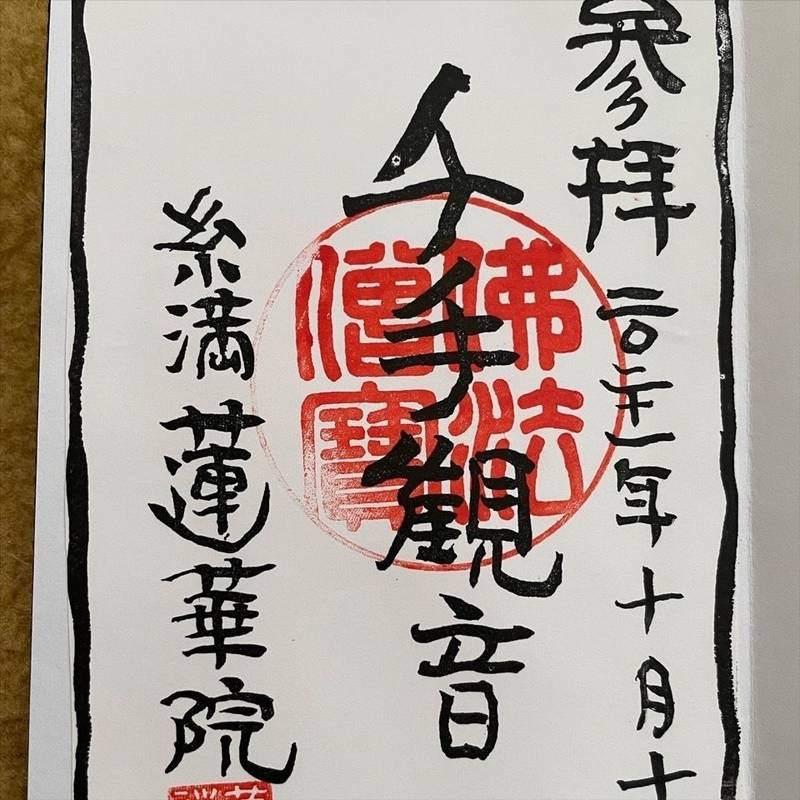 参拝 二〇二十一年十月十
千手観音
佛法僧寶
糸満 蓮華院